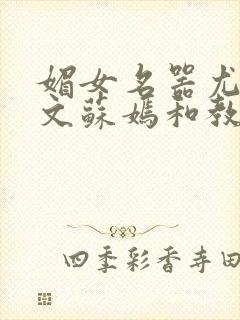 媚女名器尤
文蘇媽和教
四季彩香寺田